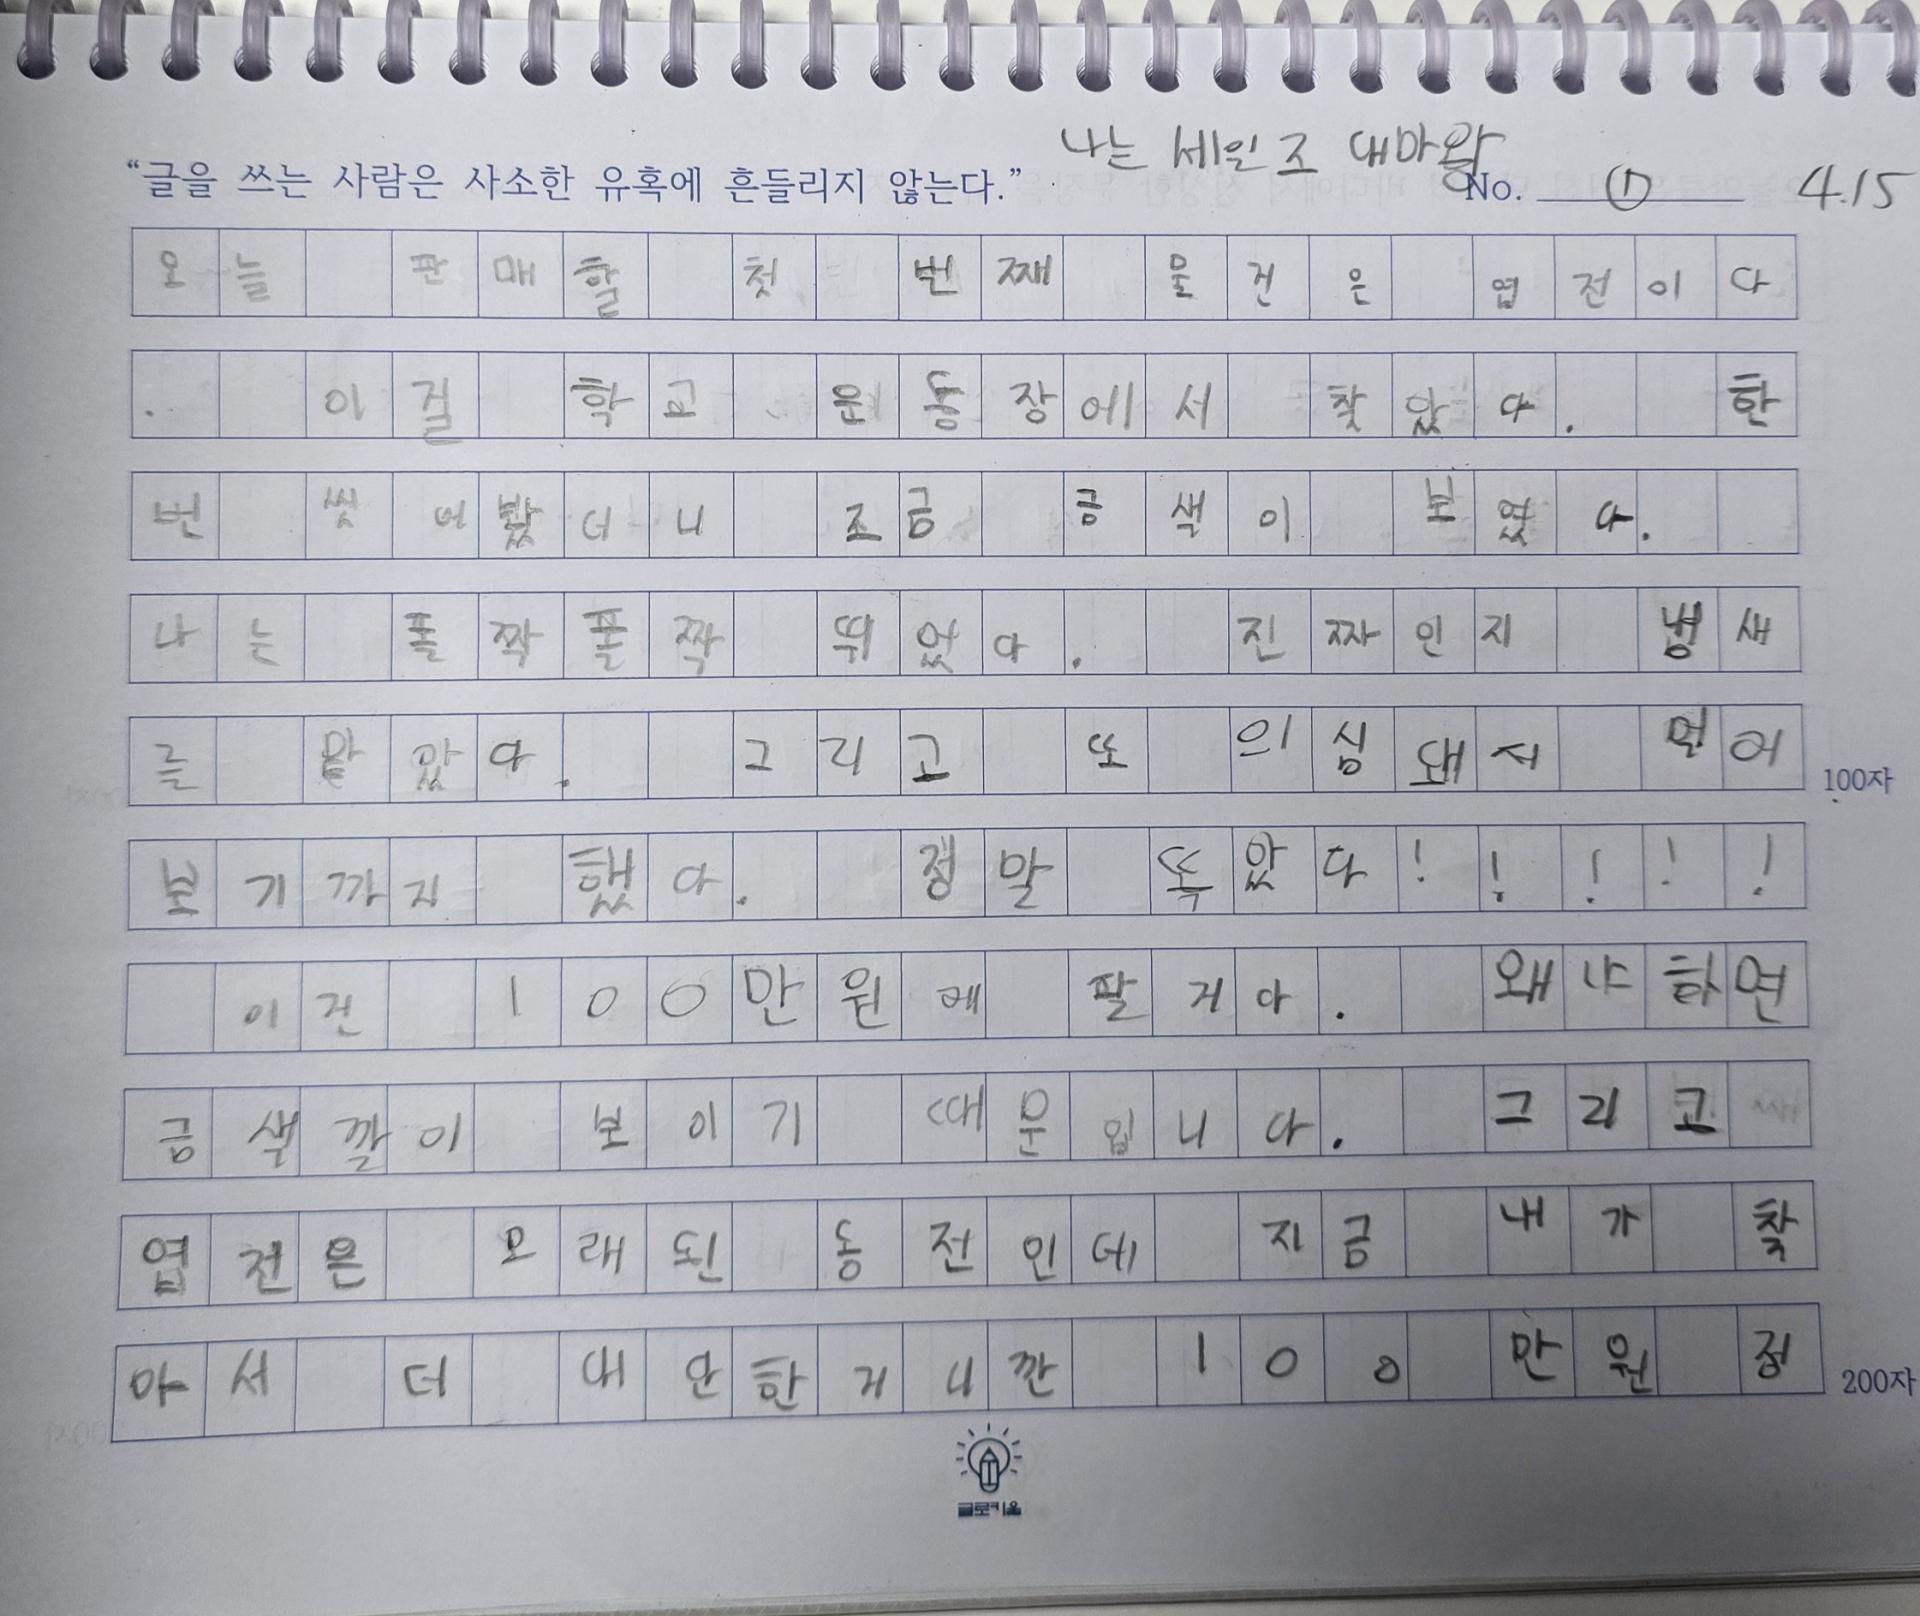 나는 세인조 대마왕
"글을 쓰는 사람은 사소한 유혹에 흔들리지 않는다." No. ① 4.15
오늘 판매할 첫 번째 물건은 엽전이다
. 이걸 학교 운동장에서 찾았다. 한
번 씻어봤더니 조금 금색이 보였다.
나는 폴짝폴짝 뛰었다. 진짜인지 냄새
를 맡았다. 그리고 또 의심돼서 먹어
보기까지 했다. 정말 똑았다!!!!!
이건 100만원에 팔거다. 왜냐하면
금색깔이 보이기 때문입니다. 그리고
엽전은 오래된 동전인데 지금 내가 찾
아서 더 대단한거니깐 100 만원 정
100자
200자
글로키움